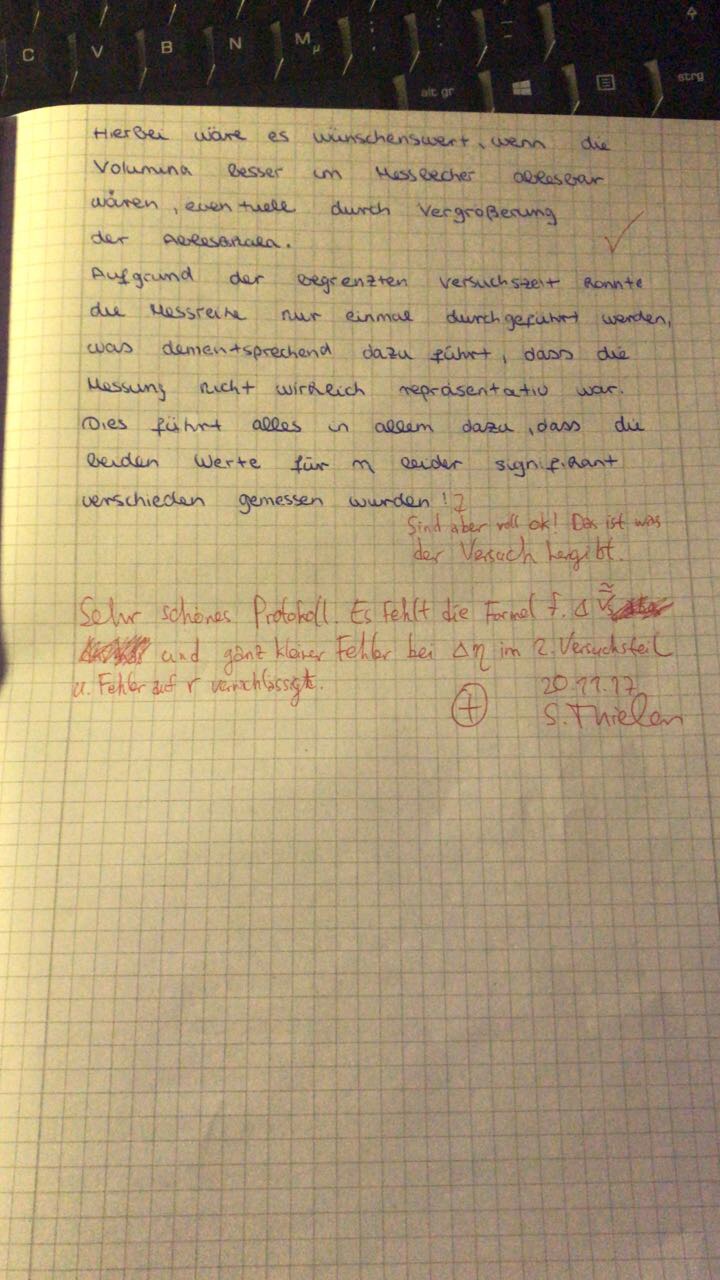 C V B N M µ ; : _
alt gr strg
Hierbei wäre es wünschenswert, wenn die
Volumina besser im Messbecher ablesbar
wären, eventuell durch Vergrößerung
der Ableseskala.
Aufgrund der begrenzten Versuchszeit konnte
die Messreihe nur einmal durchgeführt werden,
was dementsprechend dazu führt, dass die
Messung nicht wirklich repräsentativ war.
Dies führt alles in allem dazu, dass die
beiden Werte für η leider signifikant
verschieden gemessen wurden!
Sind aber voll ok! Das ist was
der Versuch hergibt.
Sehr schönes Protokoll. Es fehlt die Formel f. Δ
und ganz kleiner Fehler bei Δη im 2. Versuchsteil
u. Fehler auf r vernachlässigt.
20.11.17
+ S. Thielen